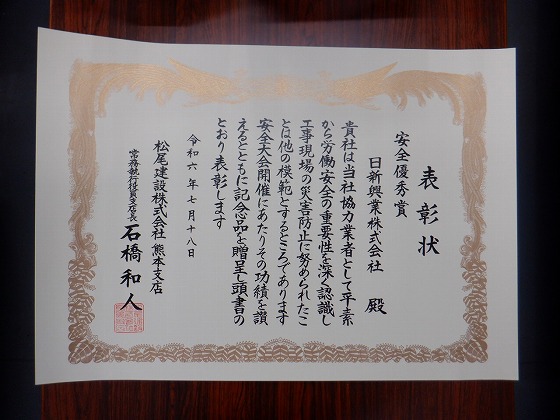 表彰状
安全優秀賞
日新興業株式会社 殿
貴社は当社協力業者として平素
から労働安全の重要性を深く認識し
工事現場の災害防止に努められたこ
とは他の模範とするところであります
安全大会開催にあたりその功績を讃
えるとともに記念品を贈呈し頭書の
とおり表彰します
令和六年七月十八日
松尾建設株式会社 熊本支店
常務執行役員支店長 石橋和人